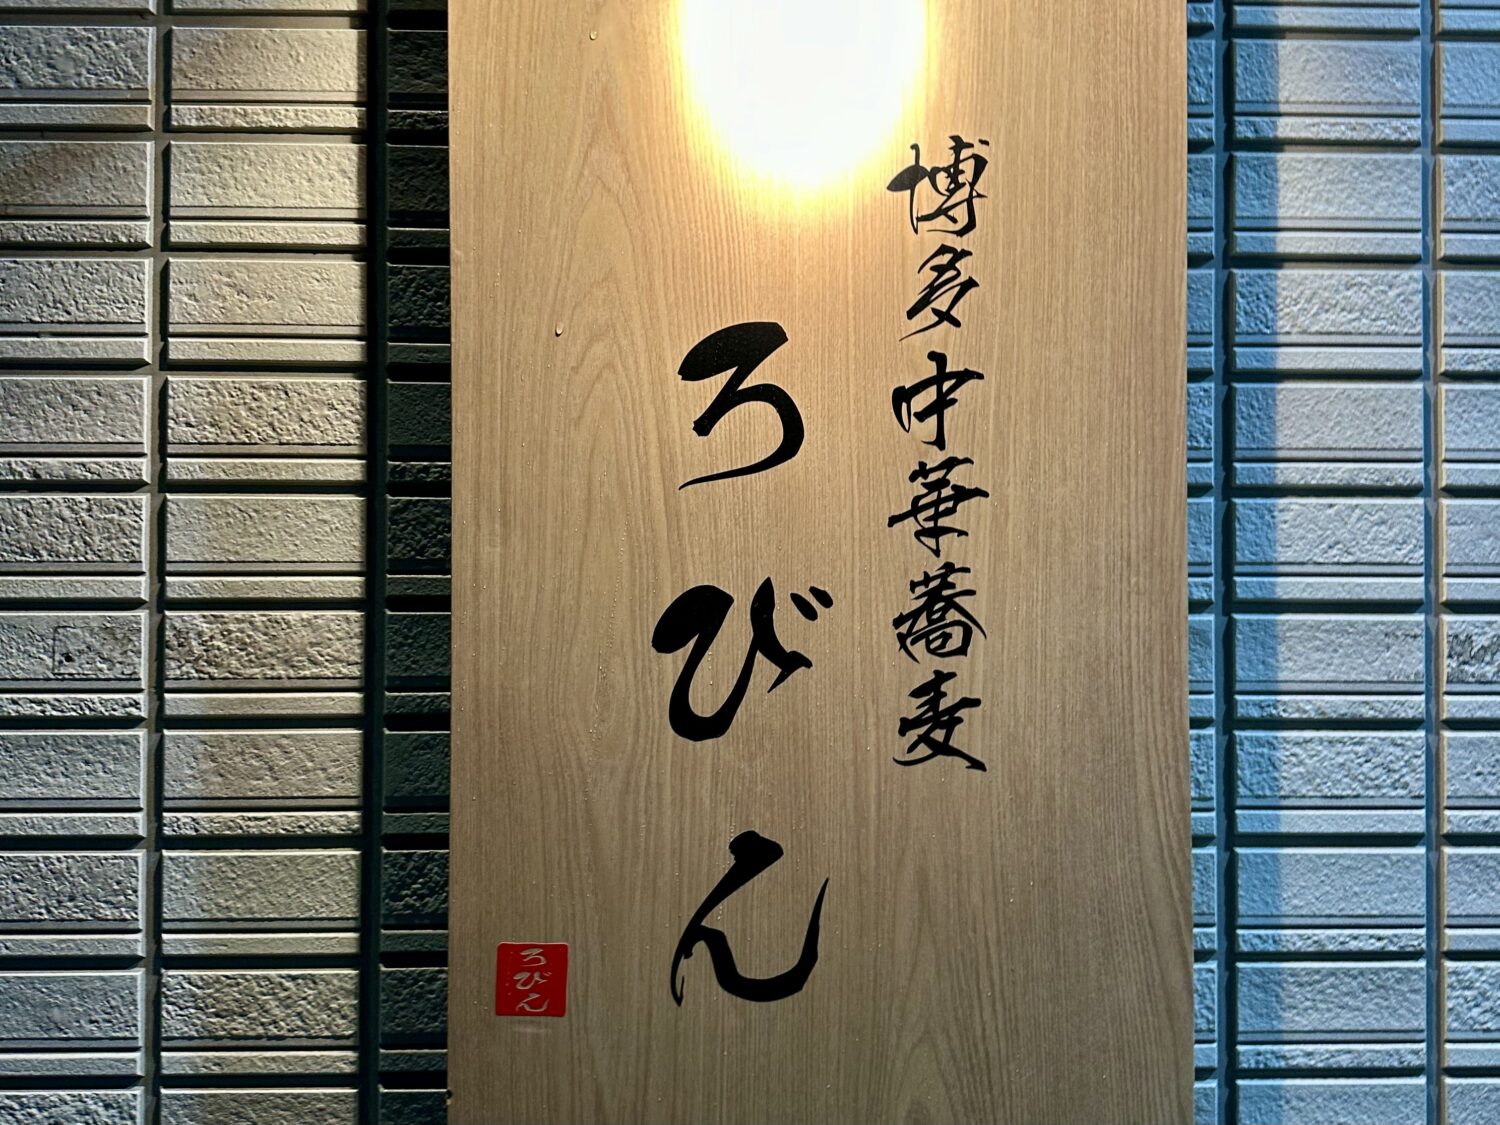 博多中華蕎麦
ろびん
ろびん